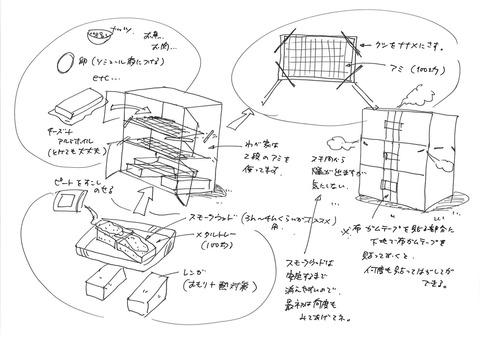 ナッツ
お魚
お肉…
卵 (ソミュール液につける)
etc…
チーズ+
アルミホイル
(とけても大丈夫)
ピートをすこし
のせる
わが家は
2段のアミを
使ってます。
スモークウッド (3h〜4hくらいが
用
メタルトレー
(100均)
レンガ
(おもり+
クシをナナメにさす。
アミ (100均)
スキ間から
煙が出ますが
気にしない。
スモークウッドは
安定するまで
消えやすいので
最初は何度も
みてあげてネ。
※布ガムテープを貼る部分に
下地で布ガムテープを
貼っておくと、
何度も貼ってはがしてが
できる。